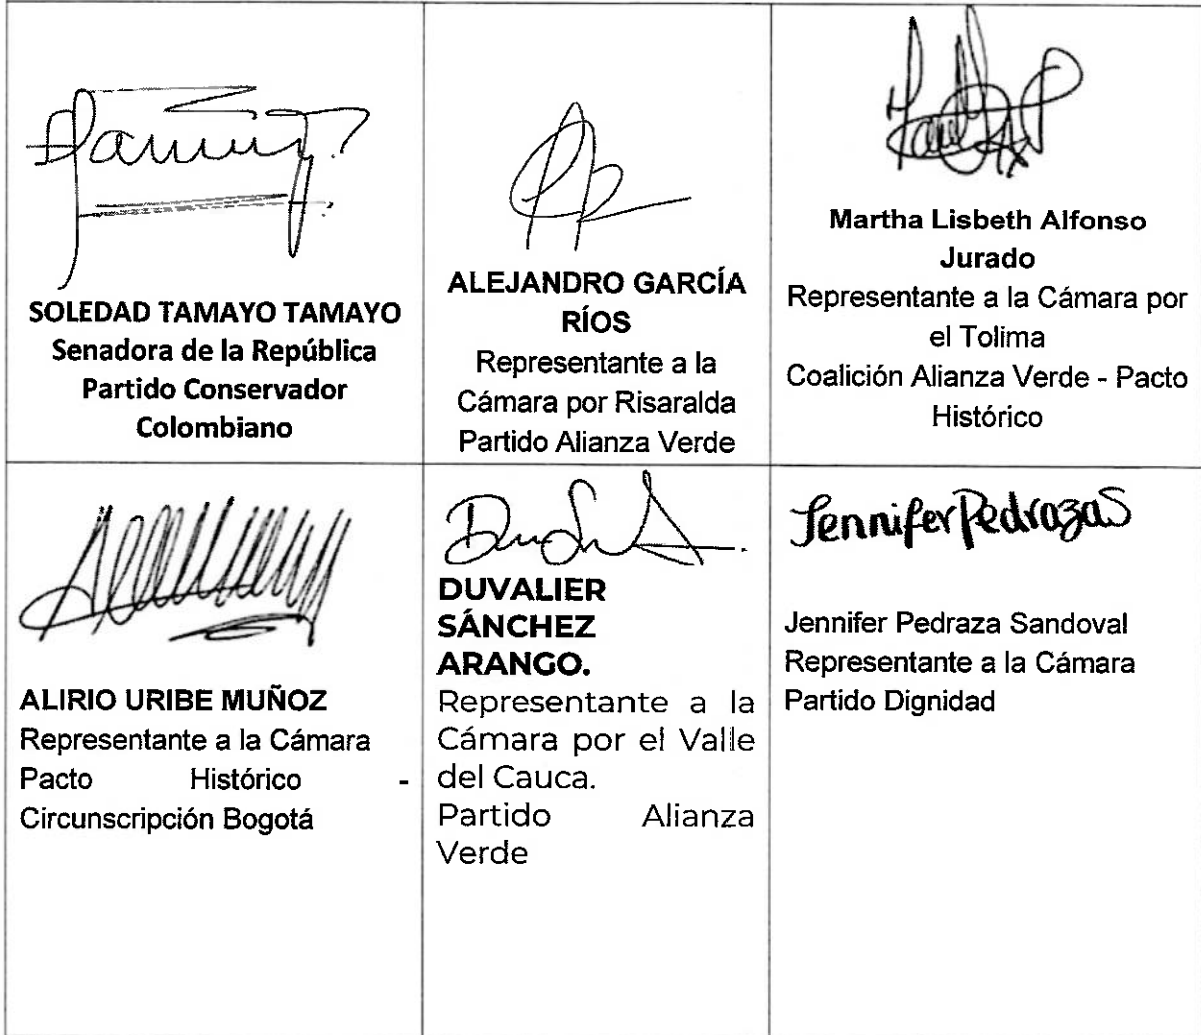 SOLEDAD TAMAYO TAMAYO
Senadora de la República
Partido Conservador
Colombiano
ALEJANDRO GARCÍA
RÍOS
Representante a la
Cámara por Risaralda
Partido Alianza Verde
Martha Lisbeth Alfonso
Jurado
Representante a la Cámara por
el Tolima
Coalición Alianza Verde - Pacto
Histórico
ALIRIO URIBE MUÑOZ
Representante a la Cámara
Pacto Histórico -
Circunscripción Bogotá
DUVALIER
SÁNCHEZ
ARANGO.
Representante a la
Cámara por el Valle
del Cauca.
Partido Alianza
Verde
Jennifer Pedraza S
Jennifer Pedraza Sandoval
Representante a la Cámara
Partido Dignidad